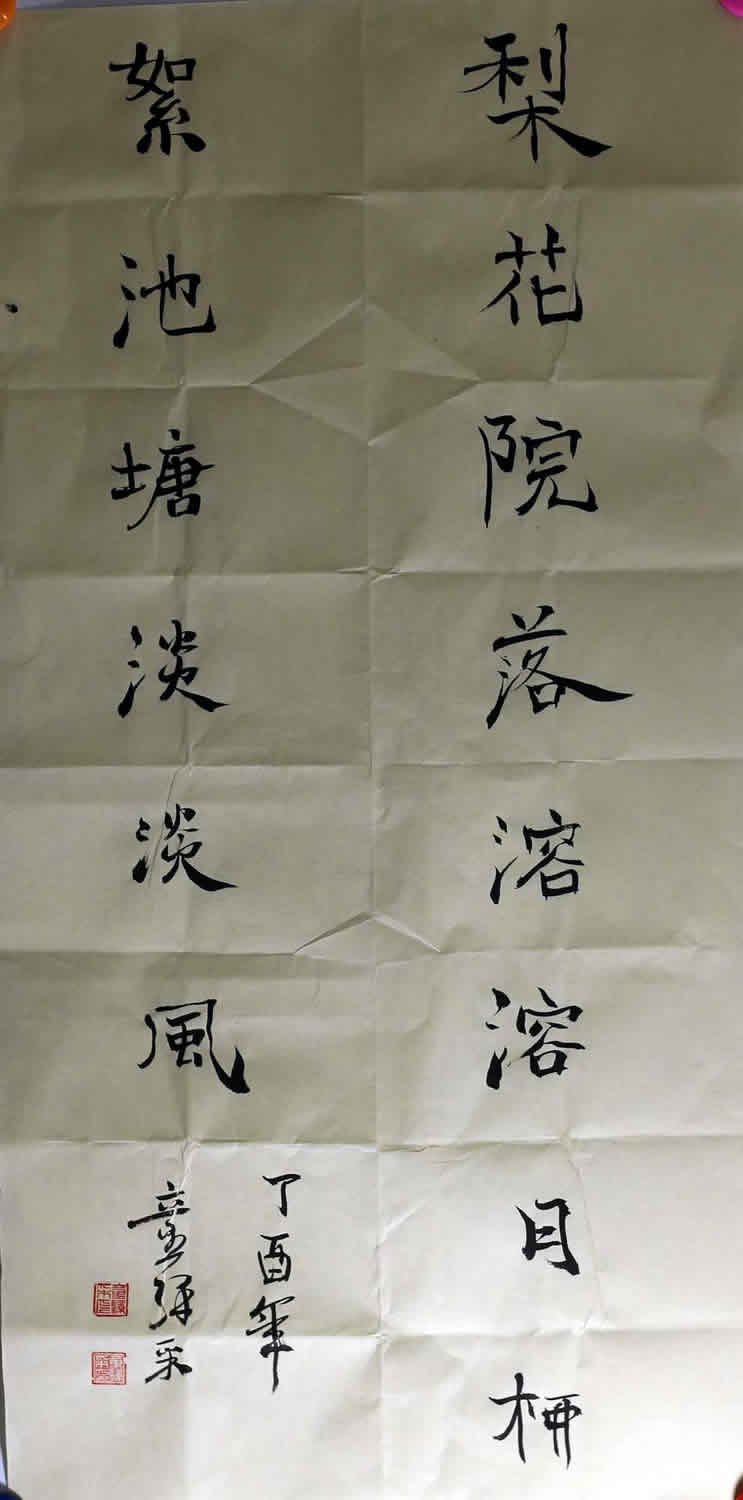 梨花院落溶溶月柳
絮池塘淡淡風
丁酉年
童